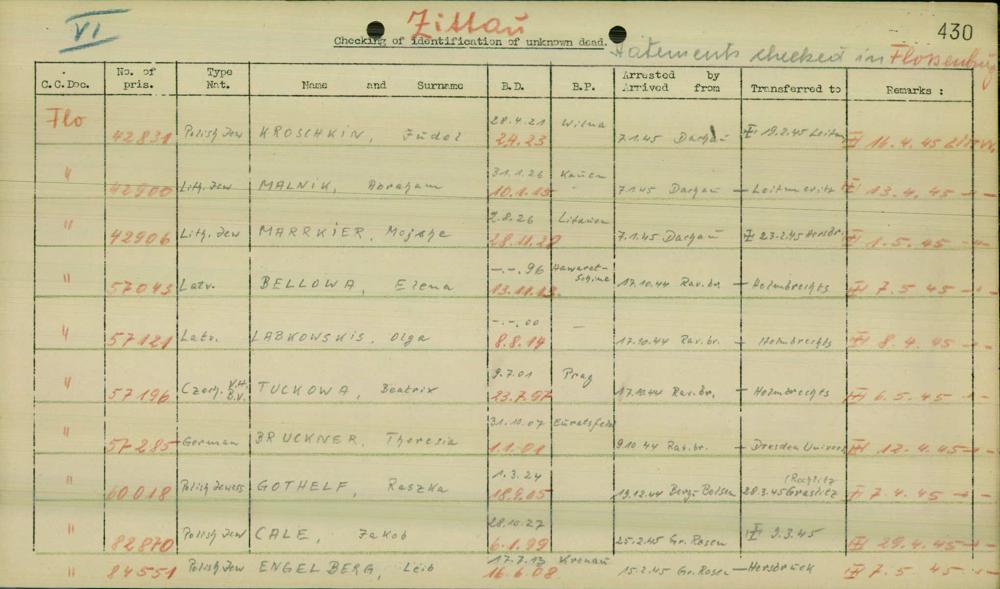 VI Zittau 430
Checking of identification of unknown dead. Statements checked in Flossenbürg
C.C.Doc. No. of pris. Type Nat. Name and Surname B.D. B.P. Arrested by Arrived from Transferred to Remarks :
Flo 42831 Polish Jew KROSCHKIN, Judel 28.4.21 Wilna 7.1.45 Dachau 19.2.45 16.4.45
2.4.23
" 42900 Lith. Jew MALNIK, Abraham 31.1.26 Kauen 7.1.45 Dachau — Leitmeritz 13.4.45 -"-
10.1.15
" 42906 Lith. Jew MARRKIER, Mojsche 2.8.26 Litauen 7.1.45 Dachau 23.2.45 1.5.45 -"-
" 57043 Latv. BELLOWA, Elena -.-.96 17.10.44 Rav.br. — Helmbrechts 7.5.45 -"-
13.11.13.
" 57121 Latv. LABKOWSKIS, Olga -.-.00 — 17.10.44 Rav.br. — Helmbrechts 8.4.45 -"-
8.8.14
" 57196 Czech. TUCKOWA, Beatrix 9.7.01 Prag 17.10.44 Rav.br. — Helmbrechts 6.5.45 -"-
23.7.97
" 57285 German BRUCKNER, Theresia 31.10.07 Euratsfeld 9.10.44 Rav.br. — Dresden Univers 12.4.45 -"-
1.1.01
" 60018 Polish Jewess GOTHELF, Raszka 1.3.24 19.12.44 Berg-Belsen 28.3.45 Graslitz 7.4.45 -"-
18.9.05
" 82870 Polish Jew CALE, Jakob 28.10.27 25.2.45 Gr.Rosen 9.3.45 29.4.45 -"-
6.1.99
" 84551 Polish Jew ENGELBERG, Leib 17.7.13 Krenau 15.2.45 Gr.Rosen — Hersbruck 7.5.45 -"-
16.6.08